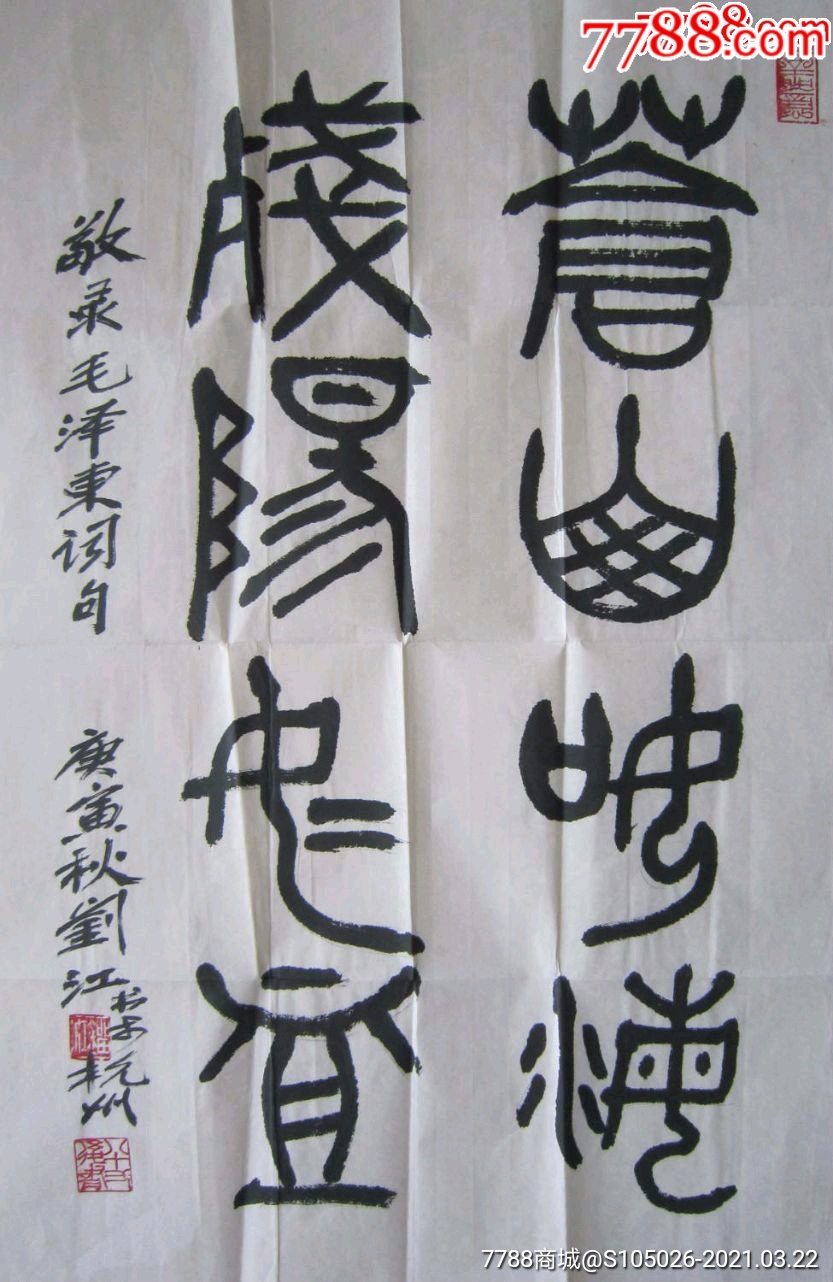 7788.com
蒼山如海
殘陽如血
敬录毛泽東词句 庚寅秋劉江书於杭州
7788商城@S105026-2021.03.22